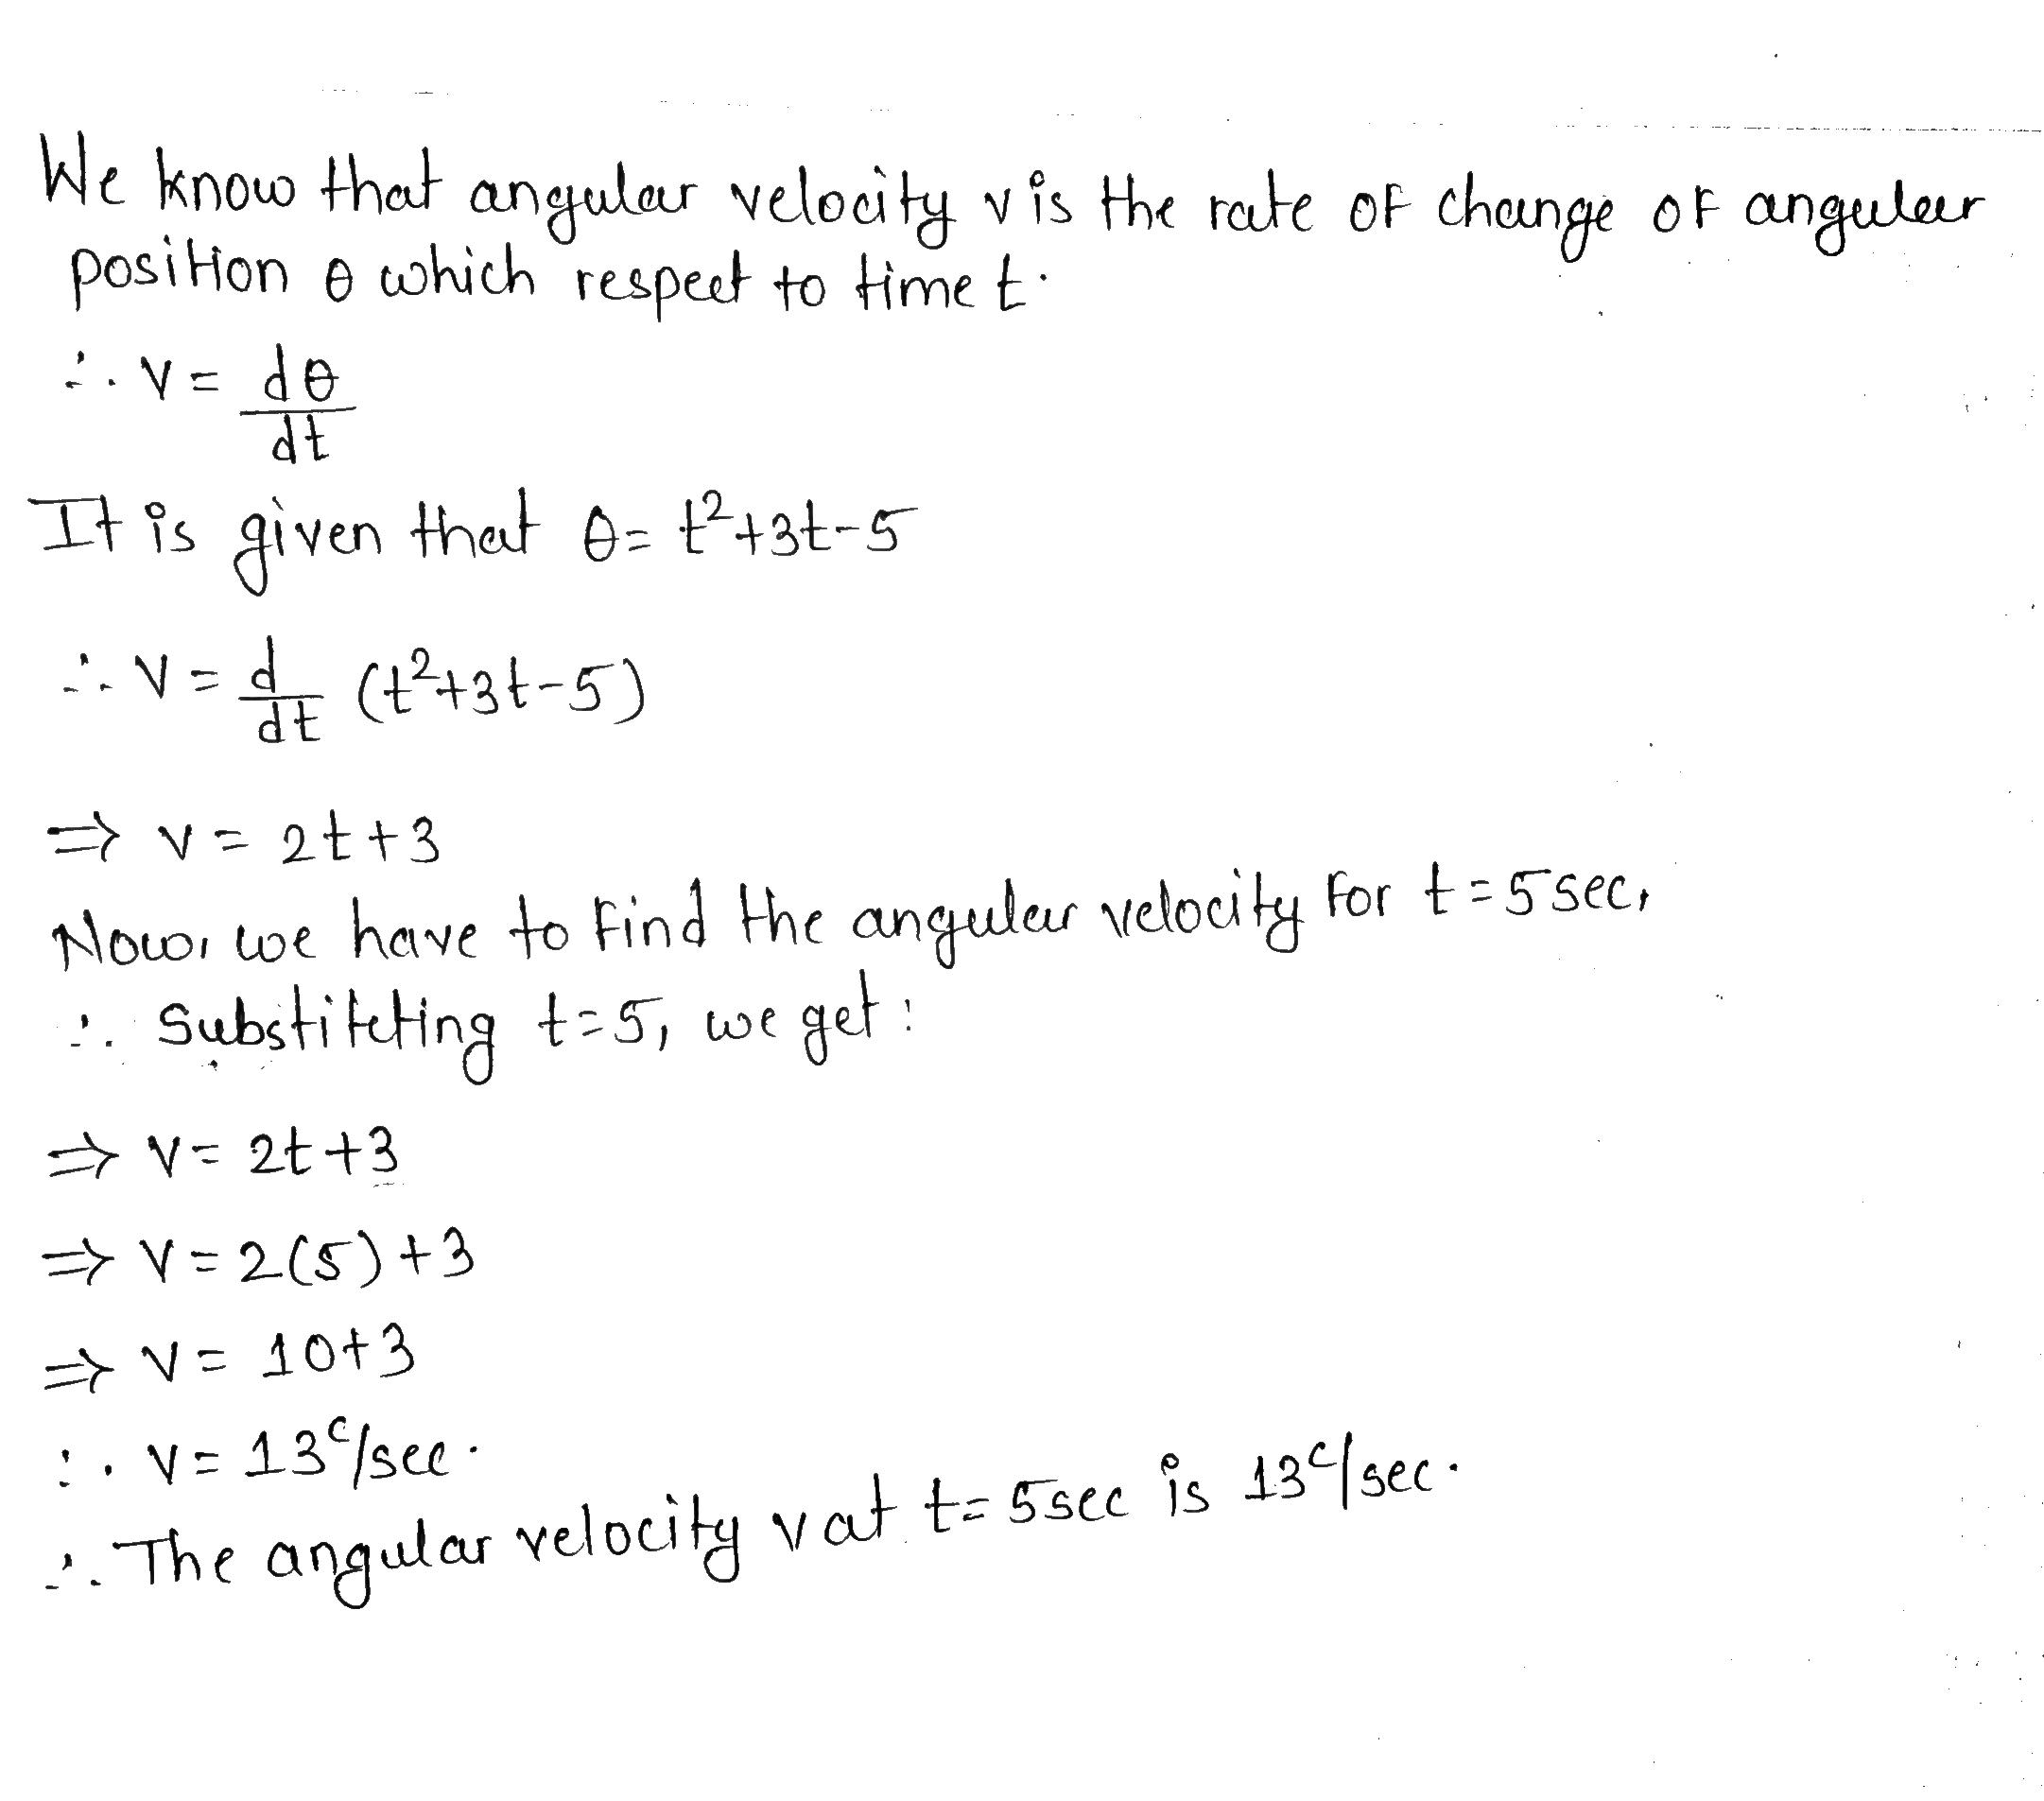 We know that angular velocity v is the rate of change of angular
position θ which respect to time t.
∴ v = dθ/dt
It is given that θ = t²+3t-5
∴ v = d/dt (t²+3t-5)
⇒ v = 2t+3
Now, we have to find the angular velocity for t=5sec,
∴ Substituting t=5, we get:
⇒ v = 2t+3
⇒ v = 2(5)+3
⇒ v = 10+3
∴ v = 13ᶜ/sec.
∴ The angular velocity v at t=5sec is 13ᶜ/sec.